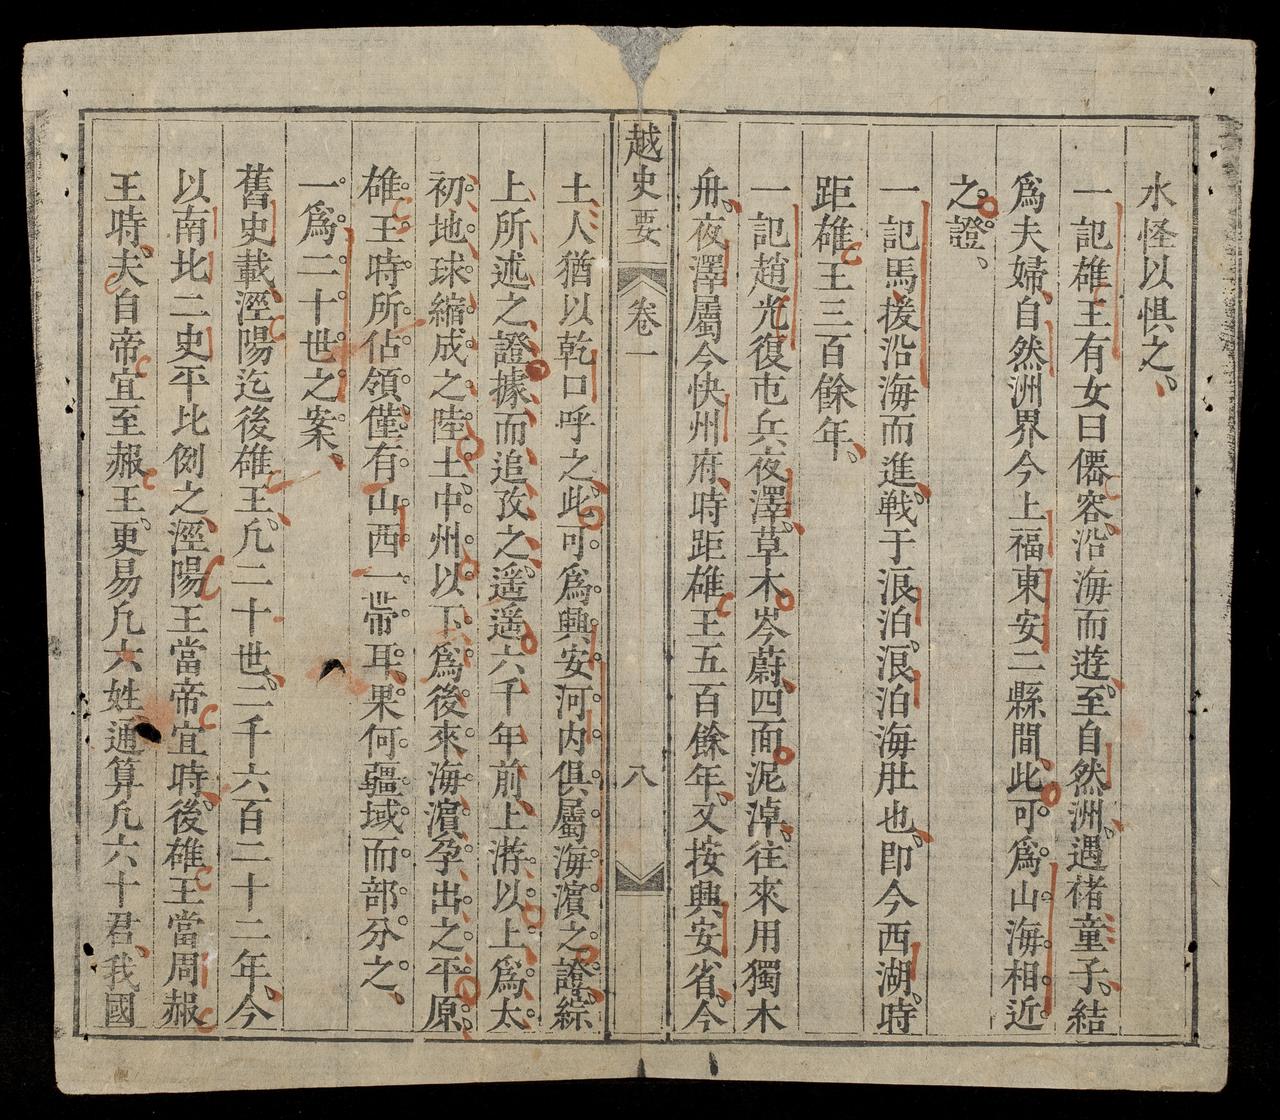 水怪以惧之、
一記雄王有女曰僊容。沿海而遊、至自然洲。遇褚童子。結
爲夫婦、自然洲界今上福東安二縣間、此可。爲。山。海。相。近。
之。證。、
一記馬援沿海而進。戰于浪泊。浪泊海肚也、即今西湖。時
距雄王三百餘年、
一記趙光復屯兵夜澤。草木岑蔚、四面泥淖。往來用獨木
舟。夜澤屬今快州府、時距雄王五百餘年、又按興安省、今
越史要
卷一
八
土人猶以乾口呼之、此。可。爲。興。安。河。内。俱。屬。海。濵。之。證。綜
上所述之證據而追攷之、遥遥六千年前、上游以。上。爲。太。
初。地。球。縮。成。之。陸。土。中。州。以。下。爲。後。來。海。濵。孕。出。之。平。原。、
雄。王。時。所。佔。領。僅。有。山。西。一。帶。耳。果。何。疆。域。而。部。分。之、
一。爲。二。十。世。之。案。、
舊史載涇陽迄後雄王。凢二十世。二千六百二十二年、今
以南北二史平比例之、涇陽王當帝宜時、後雄王當周赧
王時、夫自帝宜至赧王。更易凢六姓通算凢六十君、我國